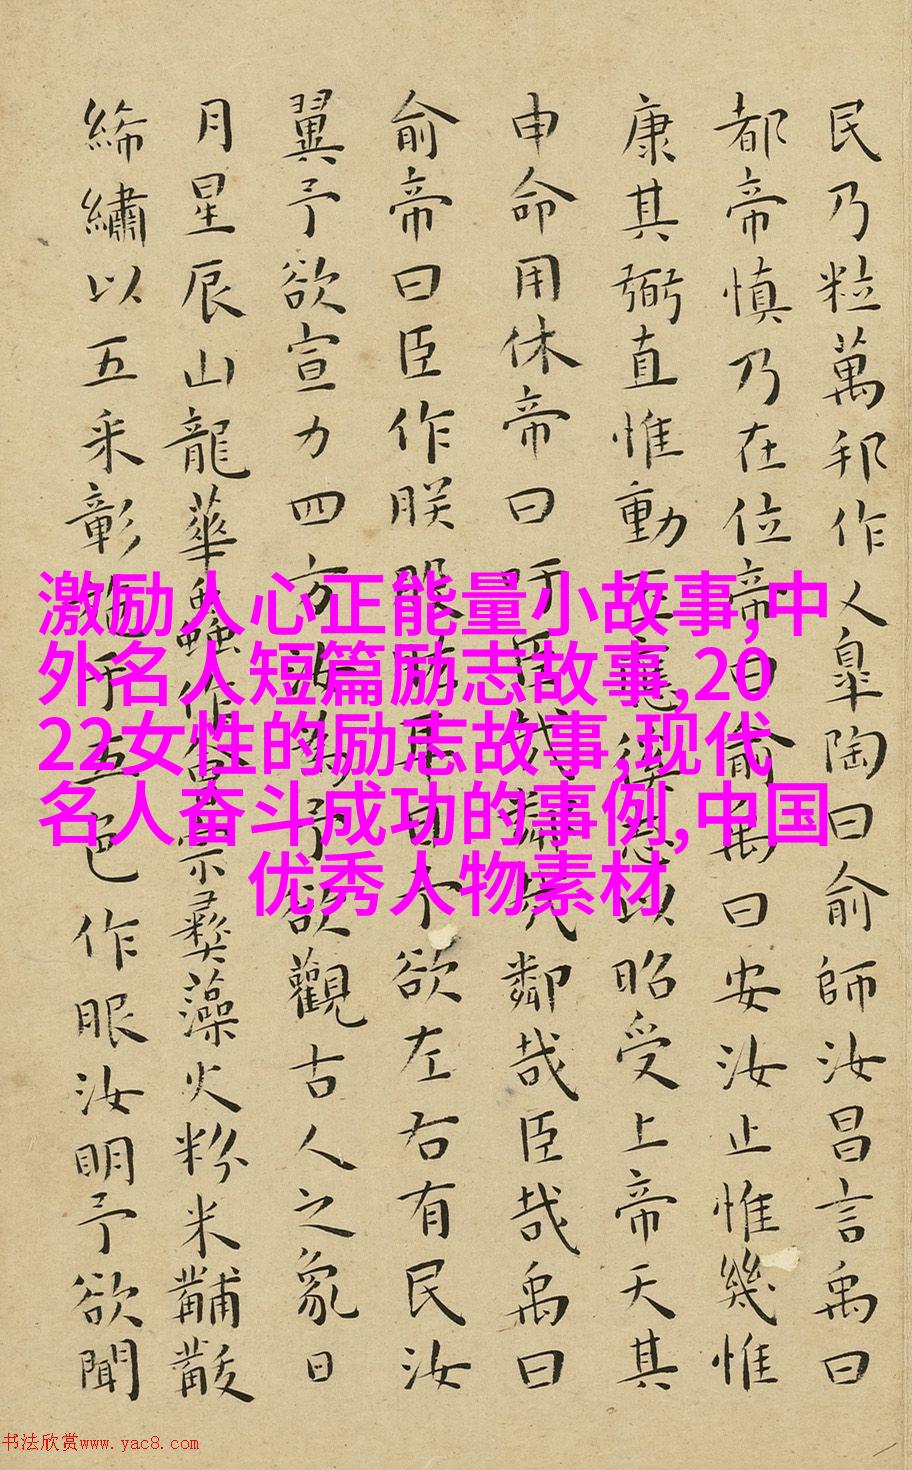 民乃粒萬邦作乂皐陶曰俞師汝昌言禹曰
都帝慎乃在位帝曰俞禹曰安汝止惟幾惟
康其弼直惟動丕應徯志以昭受上帝天其
申命用休帝曰吁臣哉鄰哉鄰哉臣哉禹曰
俞帝曰臣作朕股肱耳目予欲左右有民汝
翼予欲宣力四方汝為予欲觀古人之象日
月星辰山龍華蟲作會宗彝藻火粉米黼黻
絺繡以五采彰施于五色作服汝明予欲聞
激励人心正能量小故事,中
外名人短篇励志故事,20
22女性的励志故事,现代
名人奋斗成功的事例,中国
优秀人物素材
书法欣赏www.yac8.com